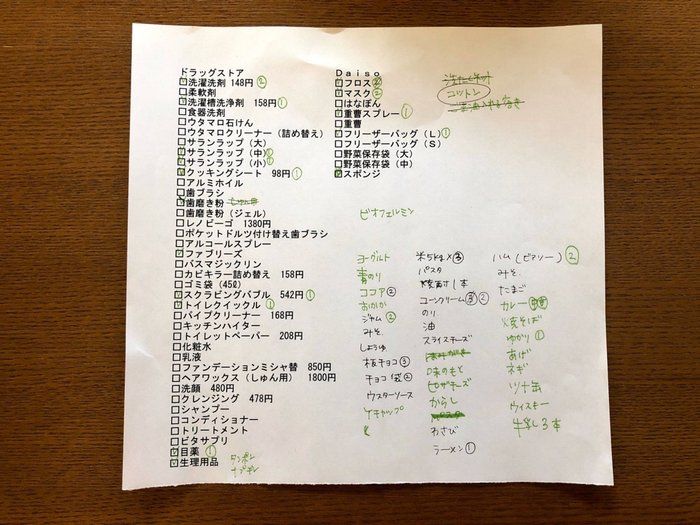 ドラッグストア
☑洗濯洗剤 148円 ②
□柔軟剤
☑洗濯槽洗浄剤 158円 ①
□食器洗剤
□ウタマロ石けん
□ウタマロクリーナー（詰め替え）
□サランラップ（大）
☑サランラップ（中）①
☑サランラップ（小）①
☑クッキングシート 98円 ①
□アルミホイル
□歯ブラシ
☑歯磨き粉
□歯磨き粉（ジェル）
□レノビーゴ 1380円
□ポケットドルツ付け替え歯ブラシ
□アルコールスプレー
☑ファブリーズ
□バスマジックリン
□カビキラー詰め替え 158円
□ゴミ袋（45ℓ）
☑スクラビングバブル 542円 ①
☑トイレクイックル ①
□パイプクリーナー 168円
□キッチンハイター
□トイレットペーパー 208円
□化粧水
□乳液
□ファンデーションミシャ替 850円
□ヘアワックス（しゅん用） 1800円
□洗顔 480円
□クレンジング 478円
□シャンプー
□コンディショナー
□トリートメント
□ビタサプリ
☑目薬 ①
☑生理用品 タンポン
ナプキン
Daiso
☑フロス ②
☑マスク ②
□はなぽん
☑重曹スプレー ①
□重曹
☑フリーザーバッグ（L）①
□フリーザーバッグ（S）
□野菜保存袋（大）
□野菜保存袋（中）
☑スポンジ
洗たくネット
コットン
ビオフェルミン
ヨーグルト
青のり
ココア ②
おかか
ジャム ②
みそ
しょうゆ
板チョコ ③
チョコ袋 ②
ウスターソース
ケチャップ
米5kg×③
パスタ
焼肉汁1本
コーンクリーム ②
のり
油
スライスチーズ
味のもと
ピザチーズ
からし
わさび
ラーメン ①
ハム（ビアソー）②
みそ
たまご
カレー
焼そば
ゆかり ①
あげ
ネギ
ツナ缶
ウィスキー
牛乳3本